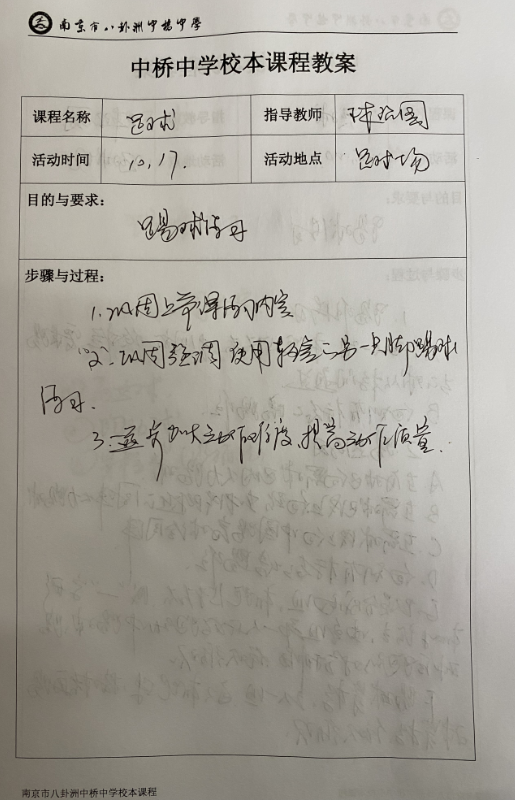 南京市八卦洲中桥中学
中桥中学校本课程教案
课程名称 足球 指导教师
活动时间 10.17. 活动地点 足球场
目的与要求:
踢球练习
步骤与过程:
1.巩固上节课练习内容
2.巩固强调使用 一只脚踢球
练习.
3.逐步加大动作 度,提高动作质量.
南京市八卦洲中桥中学校本课程